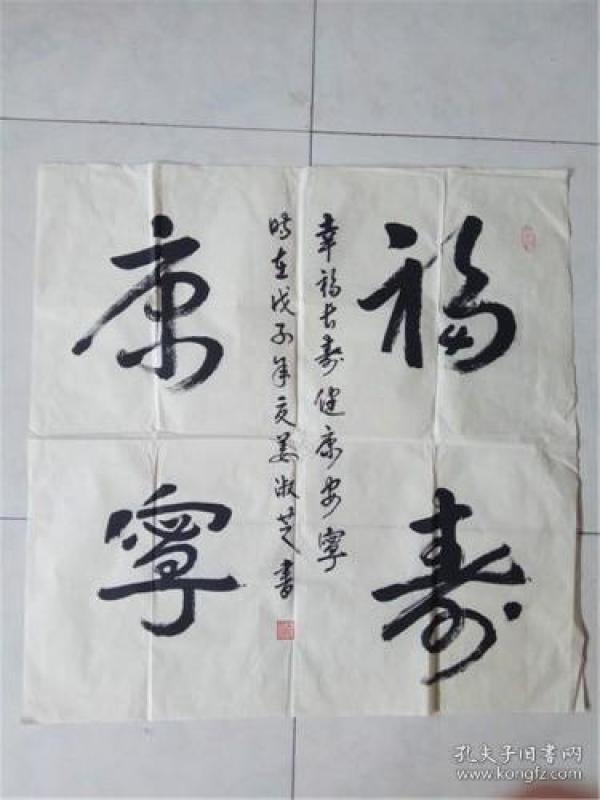 福寿
康寧
幸福长寿健康安寧
時在戊子年夏姜淑芝書
孔夫子旧書网
www.kongfz.com